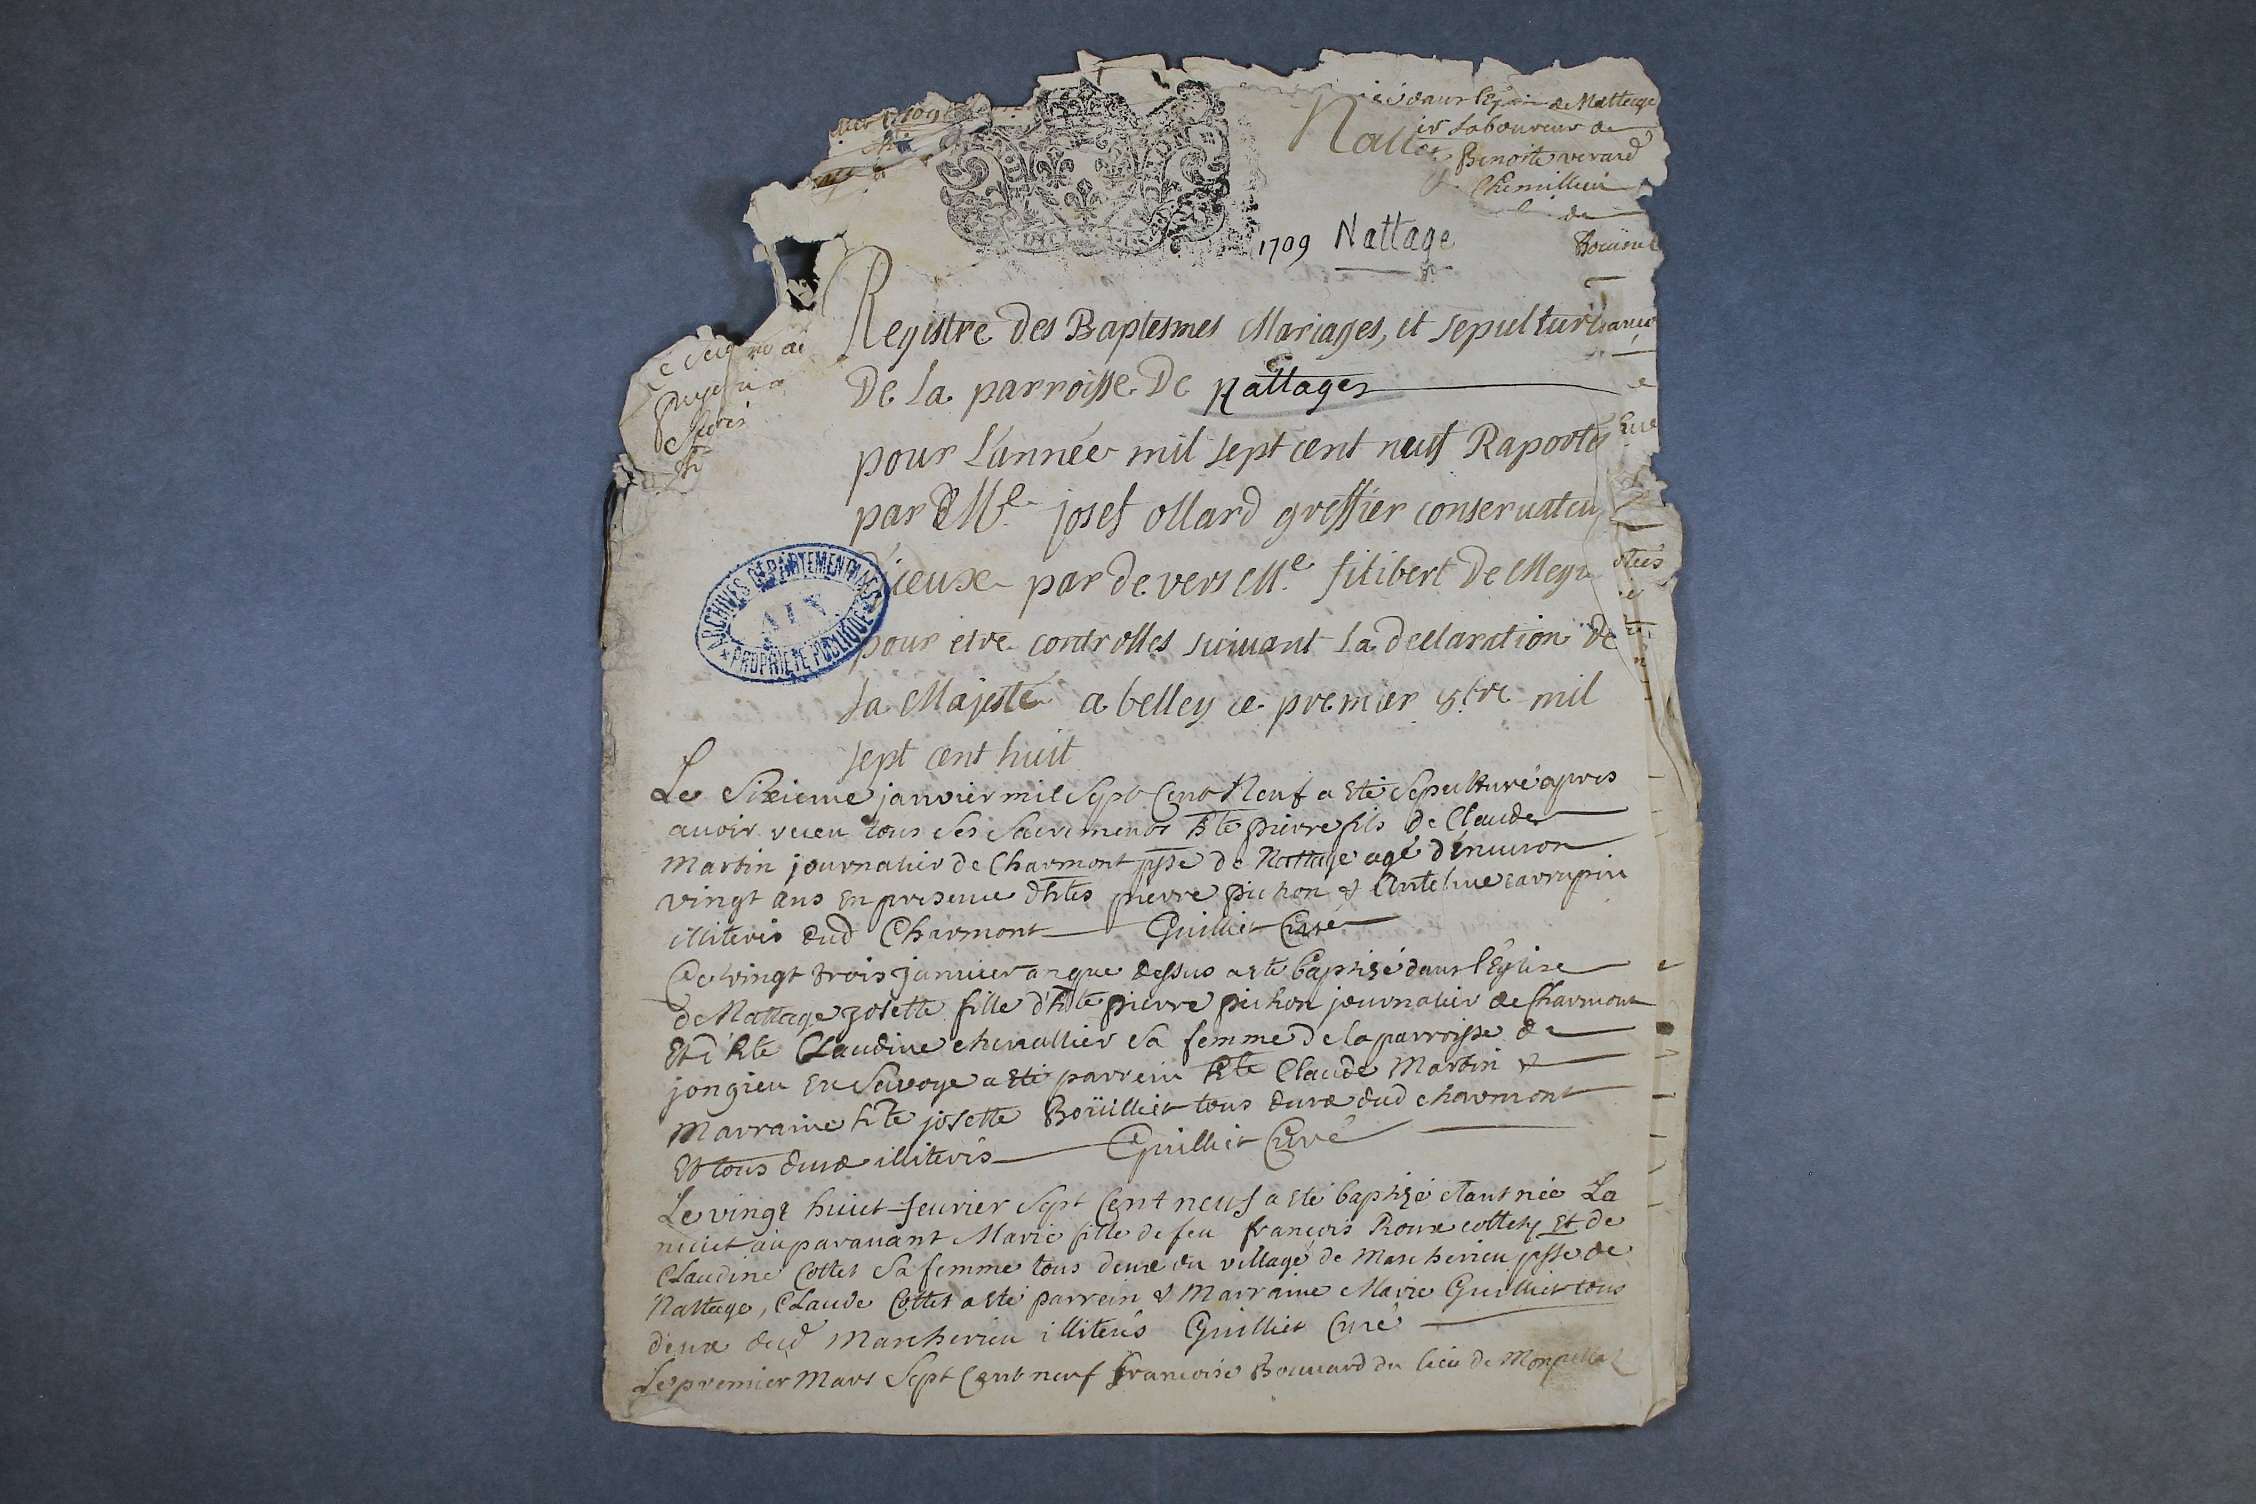 dans l'Eglise de Nattage
laboureur de
Benoite verard
Chemillieu
de
1709 Nattage
Registre des Baptesmes Mariages, et sepultur
De la parroisse De Nattages
pour l'année mil sept cent neuf Raporté
par Me josef ollard greffier conservateu
D'iceux par devers Me filibert De Meyr
pour etre controlles suivant la declaration de
sa Majesté a belley ce premier 8bre mil
sept cent huit
ARCHIVES DÉPARTEMENTALES
AIN
PROPRIÉTÉ PUBLIQUE
Le Sixieme janvier mil Sept Cent Neuf a Eté Sepulturé apres
avoir receu tous ses Sacrements hte pierre fils de Claude
Martin journalier de Charmont psse de Nattage agé d'environ
vingt ans En presence d'htes pierre pichon & Antelme carrupin
illiterés dud Charmont Guilliet Curé
Ce vingt trois janvier an que dessus a eté baptisé dans l'Eglise
de Nattage josette fille d'hte pierre pichon journalier de Charmont
Et d'hte Claudine chevallier sa femme de la parroisse de
jongieu En Savoye a Eté parrein hte Claude Martin &
Marraine hte josette Boüilliet tous deux dud charmont
Et tous deux illiterés Guilliet Curé
Le vingt huict feurier Sept Cent neuf a eté baptizé etant née La
nuict auparavant Marie fille de feu françois Roux collety Et de
Claudine Cottet Sa femme tous deux du village de Marcherieu psse de
Nattage, Claude Cottet a eté parrein & Marraine Marie Guilliet tous
deux dud Marcherieu illiterés Guilliet Curé
Le premier Mars Sept Cent neuf Francoise Bouvard du lieu de